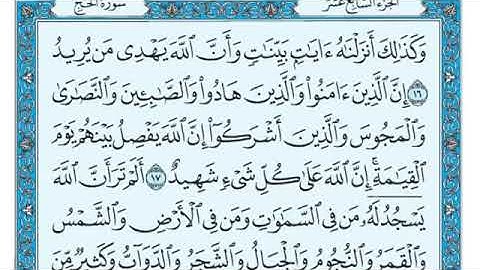 سورة الحج
الجزء السابع عشر
وَكَذَٰلِكَ أَنزَلْنَٰهُ ءَايَٰتٍۭ بَيِّنَٰتٍ وَأَنَّ ٱللَّهَ يَهْدِى مَن يُرِيدُ
١٦ إِنَّ ٱلَّذِينَ ءَامَنُوا۟ وَٱلَّذِينَ هَادُوا۟ وَٱلصَّٰبِـِٔينَ وَٱلنَّصَٰرَىٰ
وَٱلْمَجُوسَ وَٱلَّذِينَ أَشْرَكُوٓا۟ إِنَّ ٱللَّهَ يَفْصِلُ بَيْنَهُمْ يَوْمَ
ٱلْقِيَٰمَةِ ۚ إِنَّ ٱللَّهَ عَلَىٰ كُلِّ شَىْءٍ شَهِيدٌ ١٧ أَلَمْ تَرَ أَنَّ ٱللَّهَ
يَسْجُدُ لَهُۥ مَن فِى ٱلسَّمَٰوَٰتِ وَمَن فِى ٱلْأَرْضِ وَٱلشَّمْسُ
وَٱلْقَمَرُ وَٱلنُّجُومُ وَٱلْجِبَالُ وَٱلشَّجَرُ وَٱلدَّوَآبُّ وَكَثِيرٌ مِّنَ